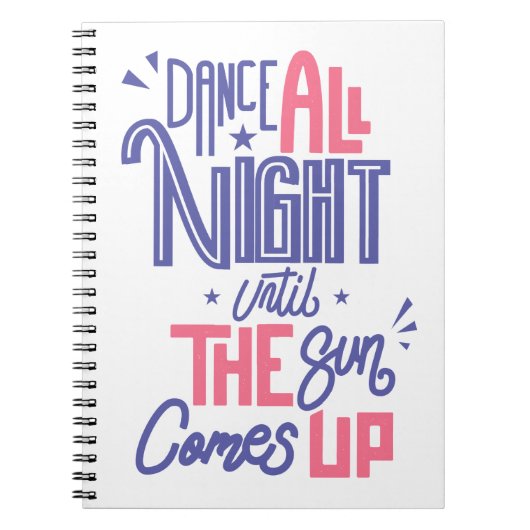 DANCE ALL
NIGHT
until
THE Sun
Comes UP